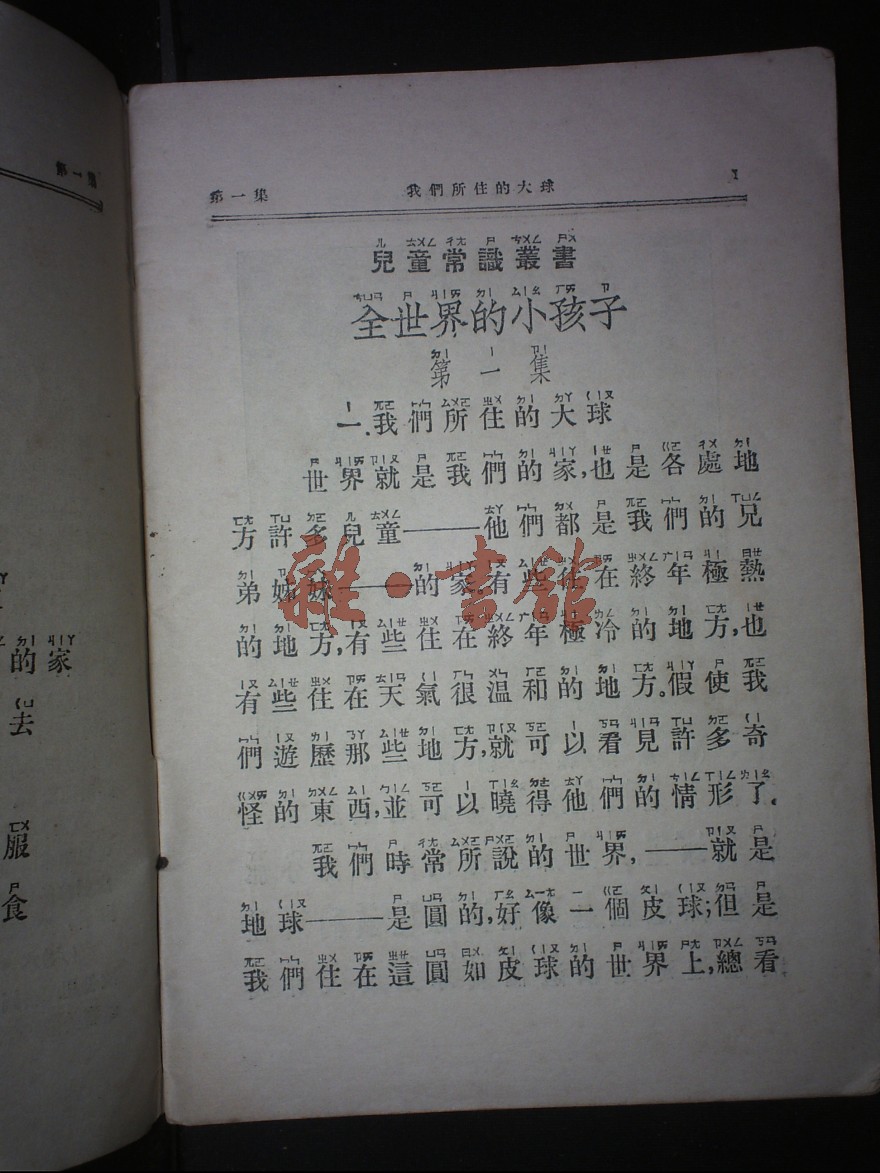 第一集
的家
去
服
食
第一集 我們所住的大球 1
兒童常識叢書
全世界的小孩子
第一集
一.我們所住的大球
世界就是我們的家,也是各處地
方許多兒童——他們都是我們的兄
弟姊妹——的家.有些住在終年極熱
的地方,有些住在終年極冷的地方,也
有些住在天氣很溫和的地方。假使我
們遊歷那些地方,就可以看見許多奇
怪的東西,並可以曉得他們的情形了.
我們時常所說的世界,——就是
地球——是圓的,好像一個皮球;但是
我們住在這圓如皮球的世界上,總看
雜·書館